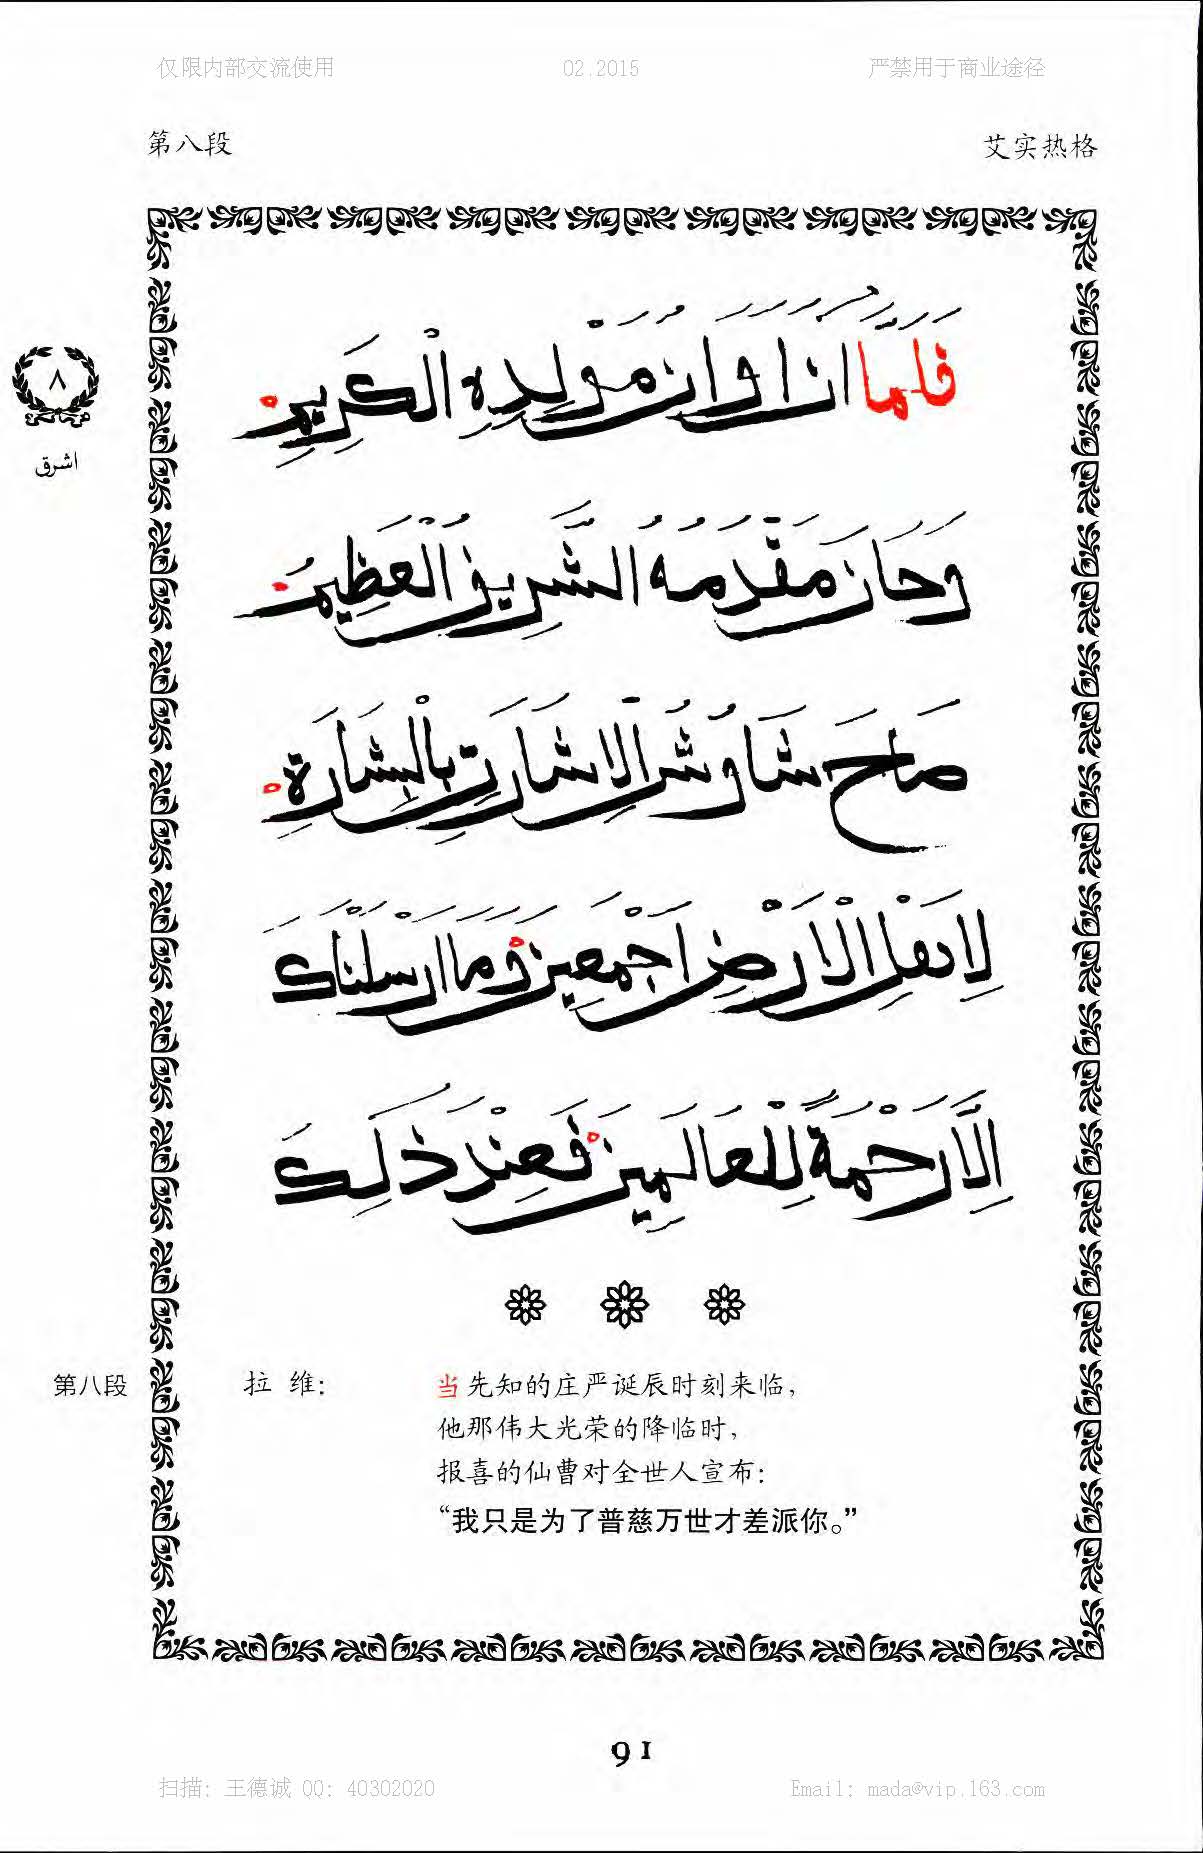 仅限内部交流使用 02.2015 严禁用于商业途径
第八段 艾实热格
فَلَمَّا اَنَ اَوَانَ مَوْلِدِهِ الْكَرِيمِ
٨
اشرق
وَحَانَ مَقْدَمُهُ الشَّرِيفُ الْعَظِيمُ
صَاحَ شَاوُشُ الْاِشَارَتِ بِالْبِشَارَةِ
لِاَهْلِ الْاَرْضِ اَجْمَعِينَ وَمَا اَرْسَلْنَاكَ
اِلَّا رَحْمَةً لِلْعَالَمِينَ فَعِنْدَ ذَلِكَ
第八段 拉 维： 当先知的庄严诞辰时刻来临，
他那伟大光荣的降临时，
报喜的仙曹对全世人宣布：
“我只是为了普慈万世才差派你。”
91
扫描: 王德诚 QQ: 40302020 Email: mada@vip.163.com